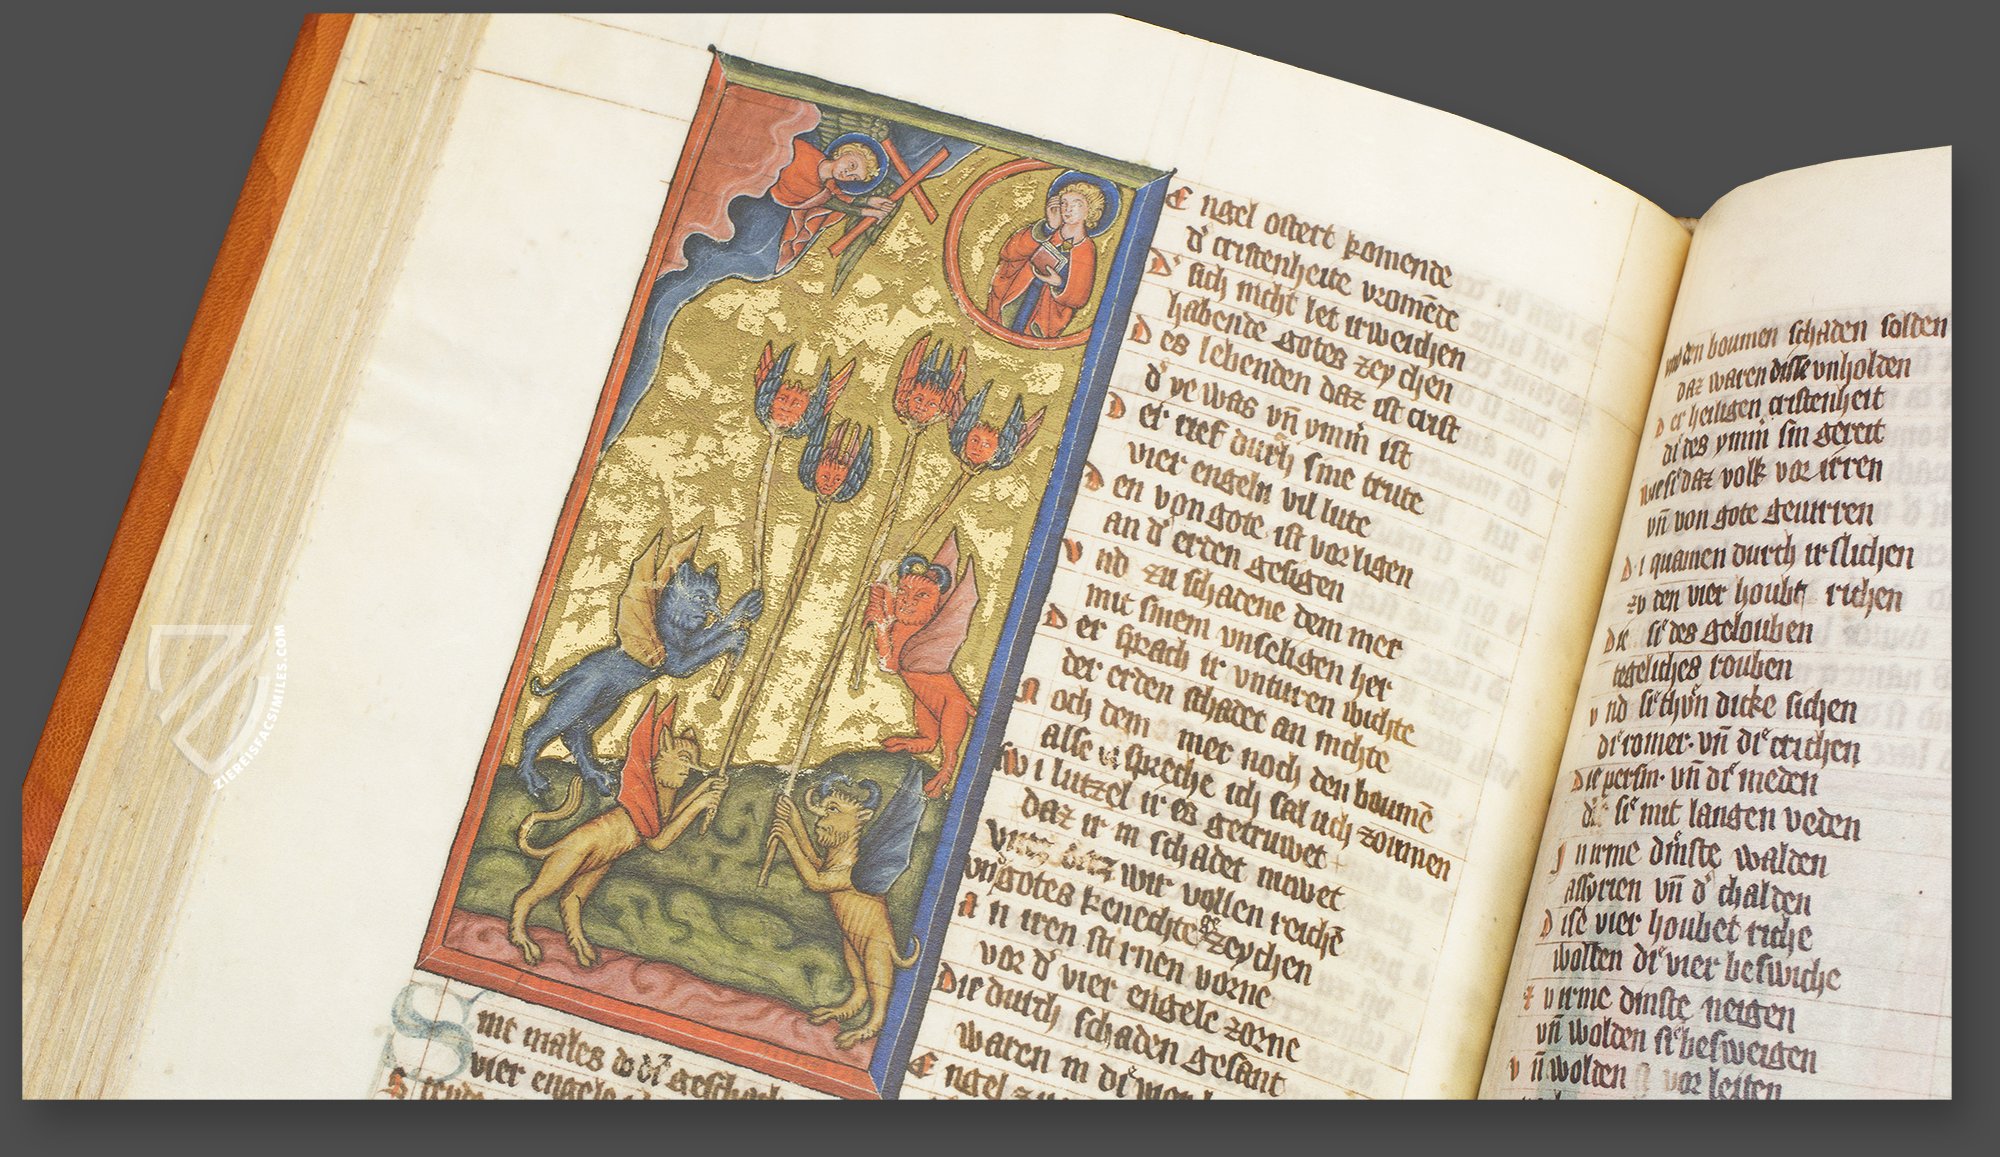 Engel ostert komende
d' cristenheite vromede
D' sich nicht let irweichen
habende gotes zeychen
Des lebenden daz ist crist
d' ye was vn̄ ymm̄ ist
Der rief durch sine trute
vier engeln vil lute
Den von gote ist vor ligen
an d' erden gesigen
Vnd zu schadene dem mer
mit sinem vnseligen her
Der sprach ir vnturen wichte
der erden schadet an nichte
Noch dem mer noch den boumē
alse spreche ich sal uch zoumen
Swi lutzel ir es getruwet
daz ir in schadet nuwet
wir wollen reichē
vn̄ gotes kenechte zeychen
An iren stirnen vorne
vor d' vier engele zorne
Die durch schaden gesant
waren in di
Engel
Sint males do di geschach
vier engele
den boumen schaden solden
daz waren disse vnholden
Der heiligen cristenheit
di des ymm̄ sin gereit
daz volk vor irren
vn̄ von gote gevirren
Di quamen durch ir slichen
zv den vier houbt richen
Die si des gelouben
tegeliches rouben
Vnd si thvn dicke sichen
di romer. vn̄ di crichen
Die persin. vn̄ di meden
di sie mit langen veden
In irme dinste walden
assyrien vn̄ d' chalden
Dise vier houbet riche
wolten di vier beswiche
Zv irme dinste neigen
vn̄ wolden si besweigen
Vn̄ wolden si vor leiten
ZIEREISFACSIMILES.COM